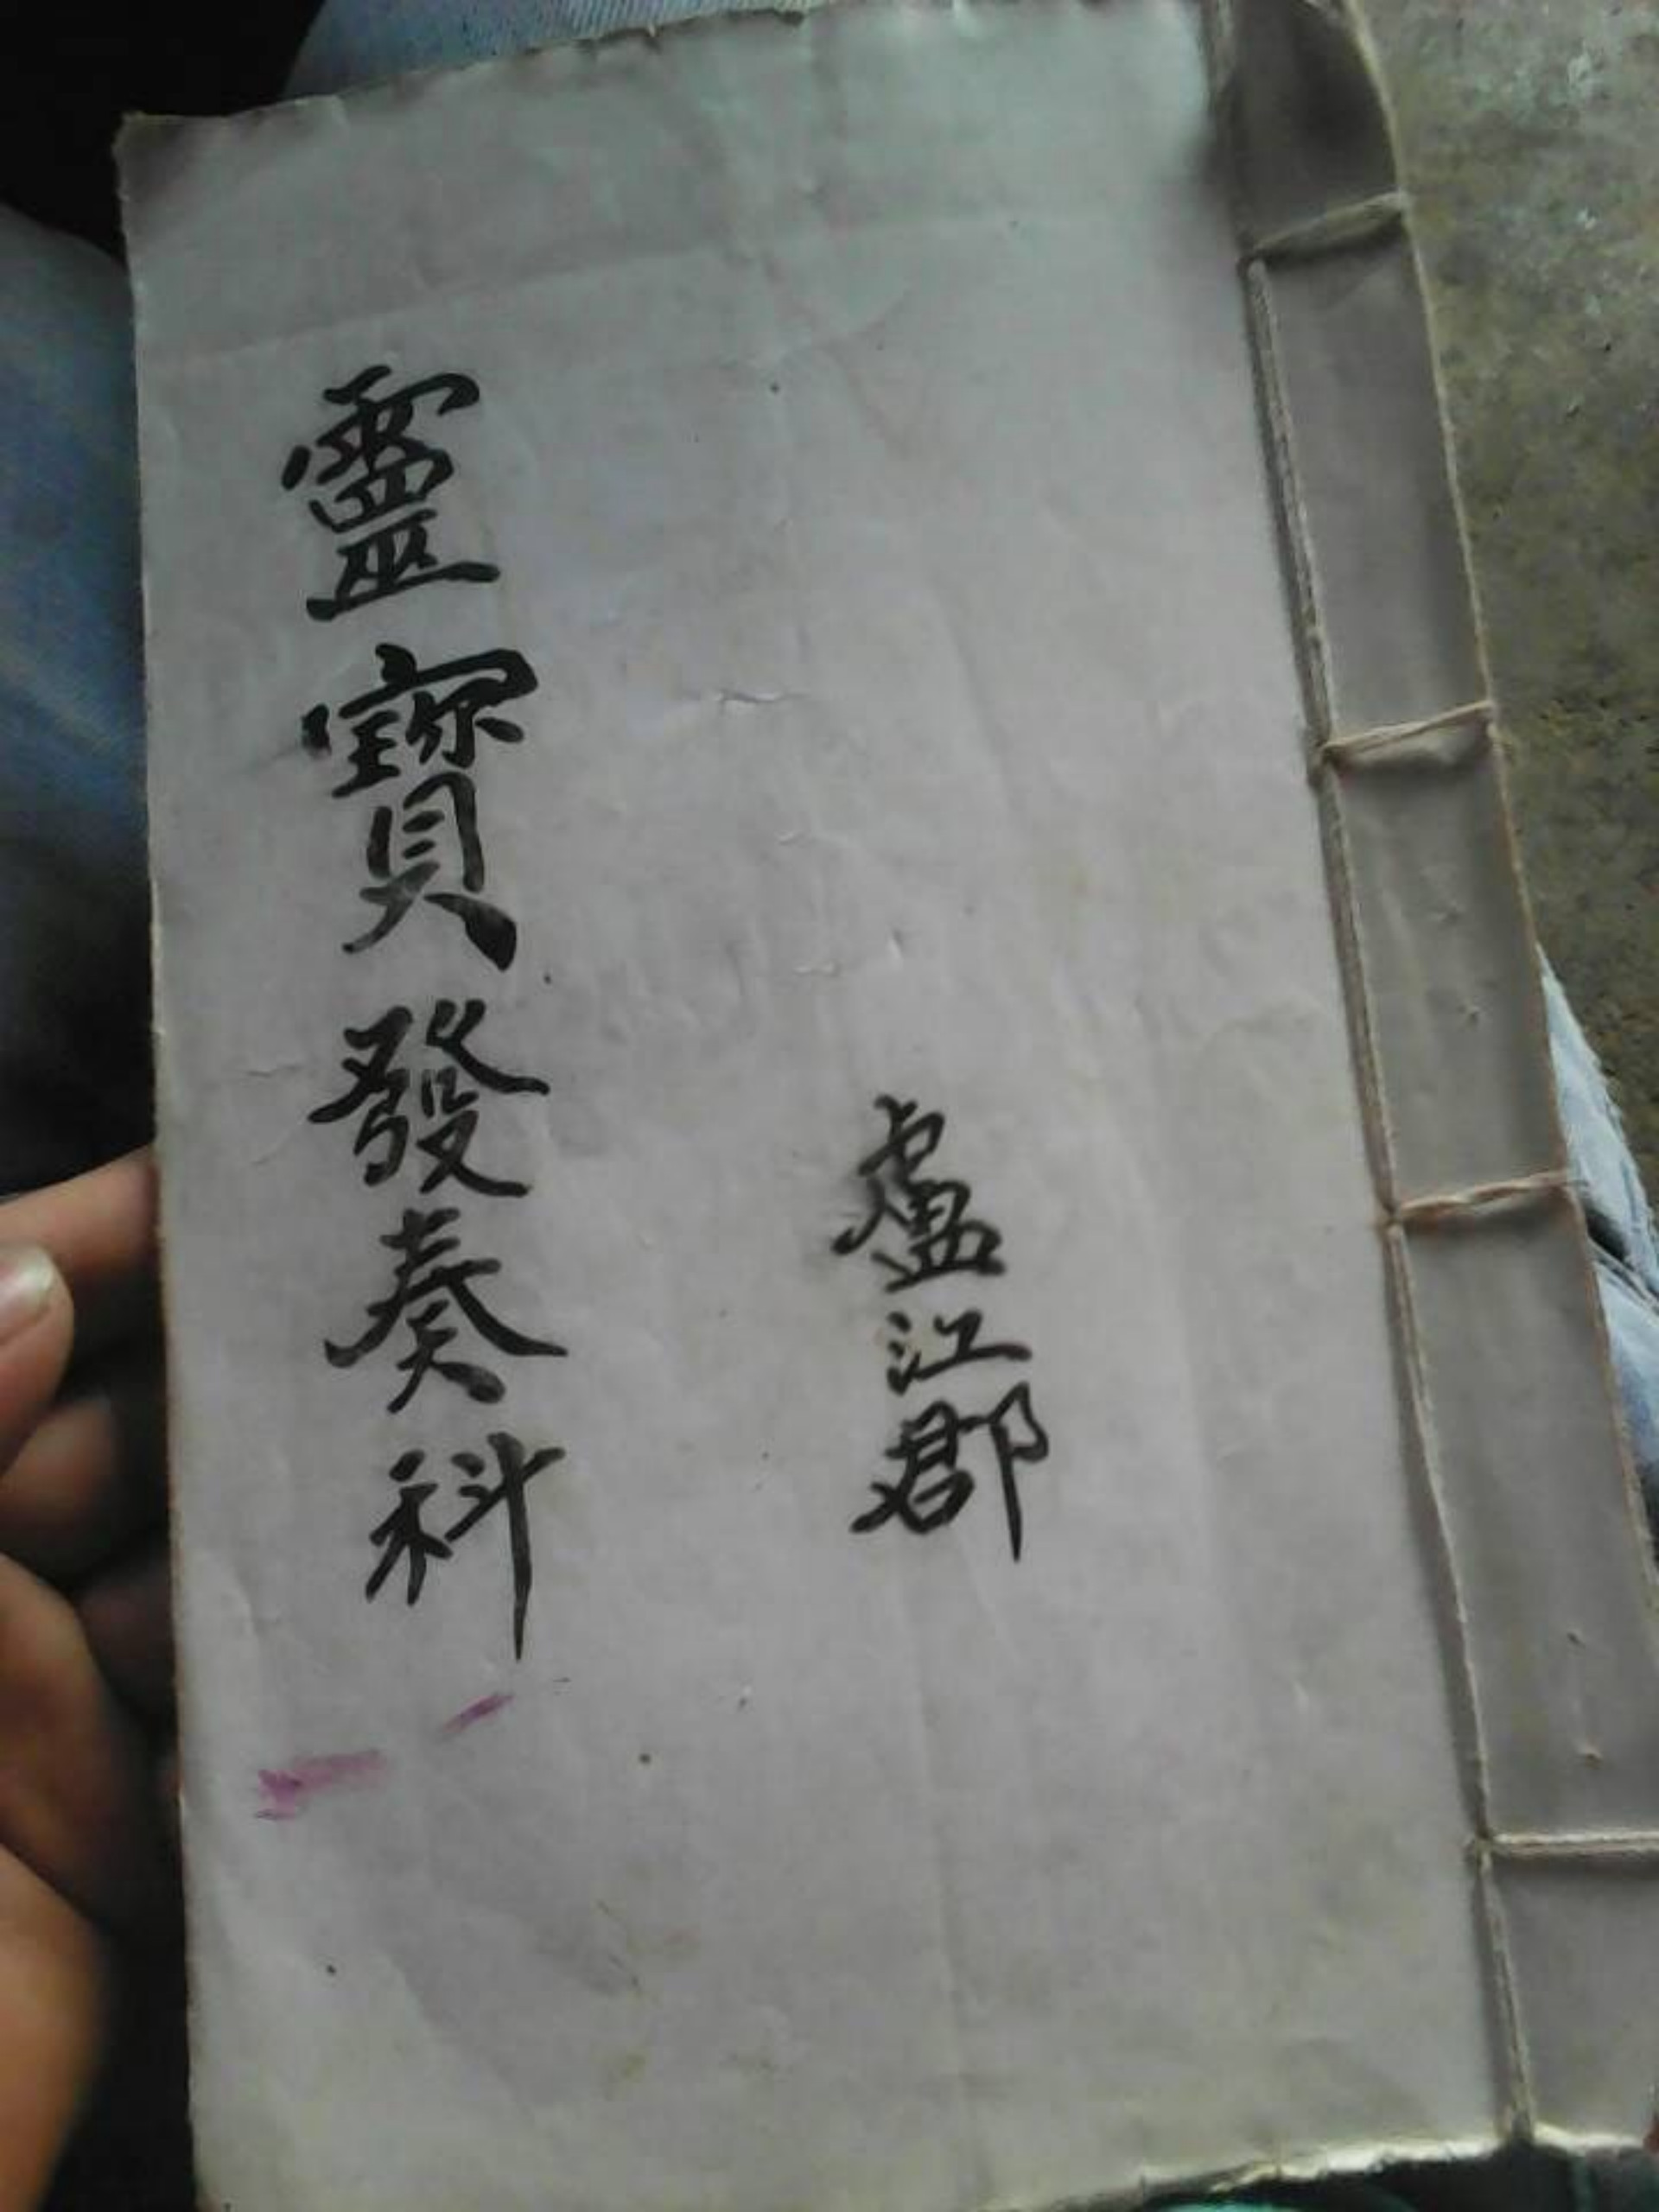 盧江郡
靈寶發奏科